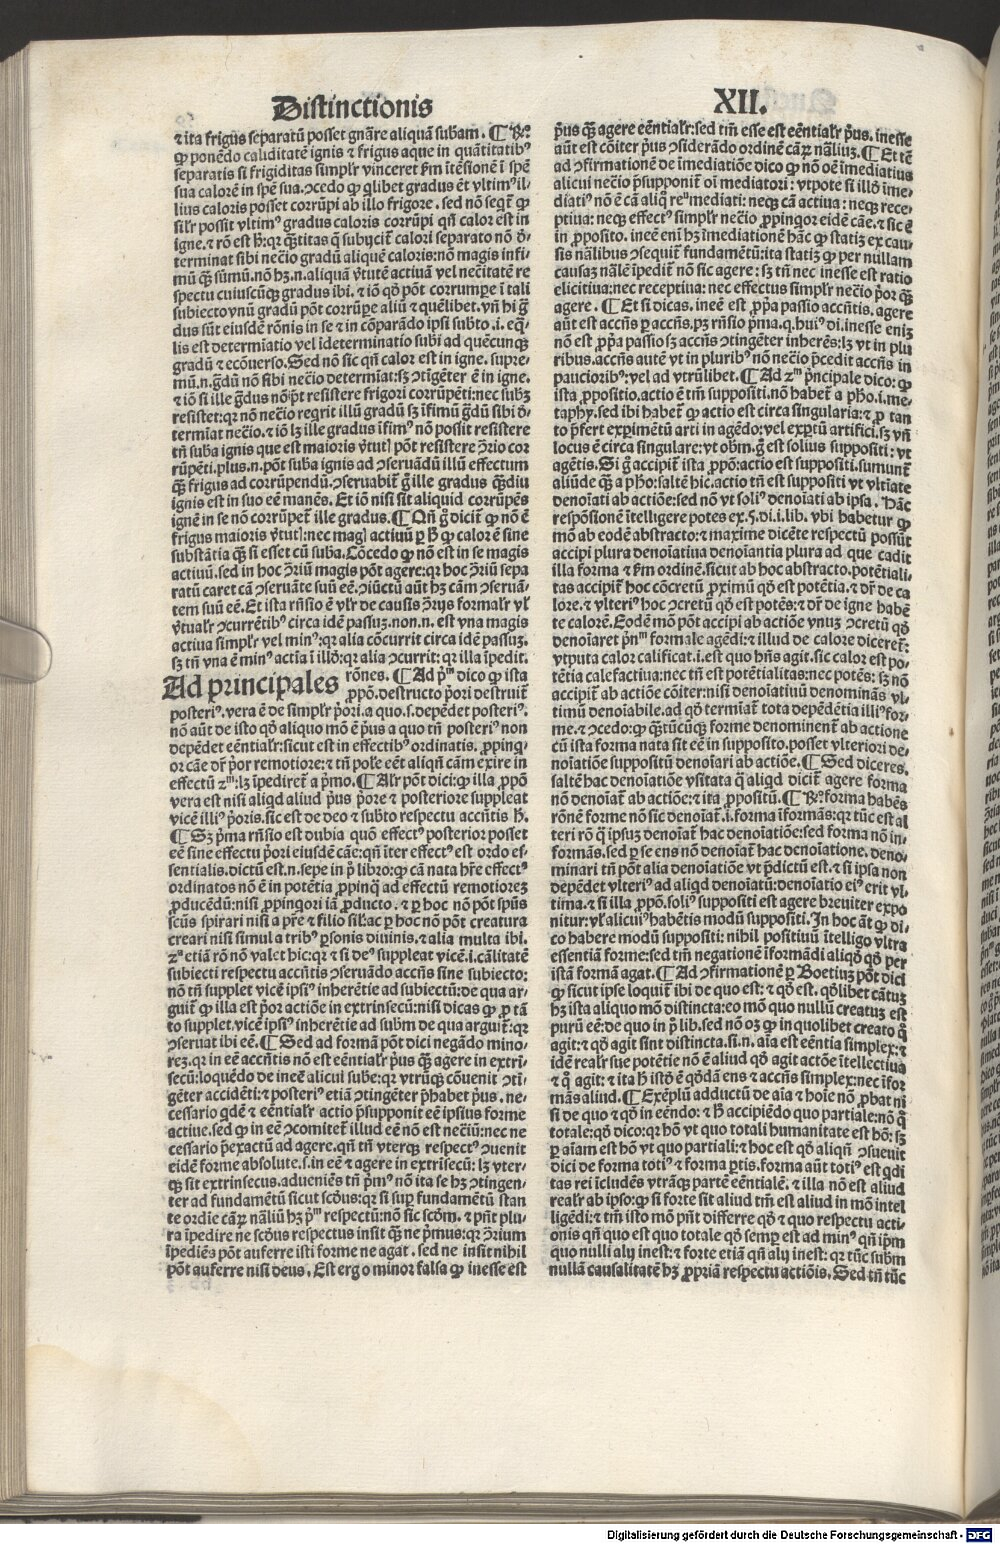 Distinctionis
XII.
⁊ ita frigus separatū posset gnāre aliquā subam. ¶ Rn̄.
ꝙ ponēdo caliditatē ignis ⁊ frigus aque in quātitatibꝰ
separatis si frigiditas simplr̄ vinceret ẜm ītēsionē ī spē
sua calorē in spē sua. ꝯcedo ꝙ qlibet gradus ēt vltimꝰ il⸗
lius caloris posset corrūpi ab illo frigore. sed nō seqt̄ ꝙ
silr̄ possit vltimꝰ gradus caloris corrūpi qn̄ calor est in
igne. ⁊ rō est h̄: qꝛ q̄titas q̄ subijcit̄ calori separato nō d̄⸗
terminat sibi necīo gradū aliquē caloris: nō magis infi⸗
mū q̄ꝫ sūmū. nō hꝫ.n. aliquā v̄tutē actiuā vel necītatē re
spectu cuiuscūqꝫ gradus ibi. ⁊ iō qd̄ pōt corrumpe ī tali
subiecto vnū gradū pōt corrūpe aliū ⁊ quēlibet. vn̄ hi ḡ
dus sūt eiusdē rōnis in se ⁊ in cōparādo ipsi subto .i. eq̄⸗
lis est determiatio vel īdeterminatio subi ad quēcunqꝫ
gradū ⁊ ecōuerso. Sed nō sic qn̄ calor est in igne. supre⸗
mū.n. ḡdū nō sibi necīo determīat: sꝫ ꝯtīgēter ē in igne.
⁊ iō si ille ḡdus nō pōt resistere frigori corrūpēti: nec subꝫ
resistet: qꝛ nō necīo reqrit illū gradū sꝫ īfimū ḡdū sibi d̄⸗
termīat necīo. ⁊ iō lꝫ ille gradus īfimꝰ nō possit resistere
tn̄ suba ignis que est maioris v̄tutꝭ pōt resistere ꝯrio cor
rūpēti. plus.n. pōt suba ignis ad ꝯseruādū illū effectum
q̄ꝫ frigus ad corrūpendū. ꝯseruabit̄ ḡ ille gradus q̄ꝫdiu
ignis est in suo eē manēs. Et iō nisi sit aliquid corrūpēs
ignē in se nō corrūpet̄ ille gradus. ¶ Qn̄ g̊ dicit̄ ꝙ nō ē
frigus maioris v̄tutꝭ: nec magꝭ actiuū ꝑ h̄ ꝙ calor ē sine
substātia q̄ꝫ si esset cū suba. Cōcedo ꝙ nō est in se magis
actiuū. sed in hoc ꝯriū magis pōt agere: qꝛ hoc ꝯriū sepa
ratū caret cā ꝯseruāte suū eē. ꝯiūctū aūt hꝫ cām ꝯseruā⸗
tem suū eē. Et ista rn̄sio ē vlr̄ de causis ꝯrijs formalr̄ vl̄
v̄tualr̄ ꝯcurrētibꝰ circa idē passuꝫ. non.n. est vna magis
actiua simplr̄ vel minꝰ: qꝛ alia cōcurrit circa idē passuꝫ.
sꝫ tn̄ vna ē minꝰ actīa ī illō: qꝛ alia ꝯcurrit: qꝛ illa īpedit.
Ad principales rōnes. ¶ Ad pͫ dico ꝙ ista
ꝓpō. destructo p̄ori destruit̄
posteriꝰ. vera ē de simplr̄ p̄ori. a quo .s. depēdet posteriꝰ.
nō aūt de isto qd̄ aliquo mō ē p̄us a quo tn̄ posteriꝰ non
depēdet eēntialr̄: sicut est in effectibꝰ ordinatis. ꝓpinqꝰ⸗
or cāe dr̄ p̄or remotiore: ⁊ tn̄ pole eēt aliqn̄ cām exire in
effectū 2ͫ: lꝫ īpediret̄ a p̄mo. ¶ Alr̄ pōt dici: ꝙ illa ꝓpō
vera est nisi aliqd aliud p̄us p̄ore ⁊ posteriore suppleat
vicē illiꝰ p̄oris. sic est de deo ⁊ subto respectu accn̄tis h̄.
¶ Sꝫ p̄ma rn̄sio est dubia quō effectꝰ posterior posset
eē sine effectu p̄ori eiusdē cāe: qn̄ īter effectꝰ est ordo es⸗
sentialis. dictū est.n. sepe in p̄ libro: ꝙ cā nata hr̄e effectꝰ
ordinatos nō ē in potētia ꝓpinq̄ ad effectū remotiorez
ꝓducēdū: nisi ꝓpinqori iā ꝓducto. ⁊ ꝑ hoc nō pōt spūs
sc̄us spirari nisi a pr̄e ⁊ filio sil̄: ac ꝑ hoc nō pōt creatura
creari nisi simul a tribꝰ ꝑsonis diuinis. ⁊ alia multa ibi.
2ᵃ etiā rō nō valet hic: qꝛ ⁊ si deꝰ suppleat vicē .i. cālitatē
subiecti respectu accn̄tis ꝯseruādo accn̄s sine subiecto:
nō tn̄ supplet vicē ipsiꝰ inherētie ad subiectū: de qua ar⸗
guit̄ ꝙ illa est p̄or actiōe in extrinsecū: nisi dicas ꝙ ꝓ tā
to supplet. vicē ipsiꝰ inherētie ad subm de qua arguit̄: qꝛ
ꝯseruat ibi eē. ¶ Sed ad formā pōt dici negādo mino⸗
reꝫ. qꝛ in eē accn̄tis nō est eēntialr̄ p̄us q̄ꝫ agere in extrī⸗
secū: loquēdo de ineē alicui sube: qꝛ vtrūqꝫ cōuenit ꝯtī⸗
gēter accidēti: ⁊ posteriꝰ etiā ꝯtingēter p̄habet p̄us. ne⸗
cessario qdē ⁊ eēntialr̄ actio p̄supponit eē ipsius forme
actiue. sed ꝙ in eē ꝯcomitet̄ illud eē nō est necīū: nec ne
cessario p̄exactū ad agere. qn̄ tn̄ vterqꝫ respectꝰ ꝯuenit
eidē forme absolute .s. in eē ⁊ agere in extrīsecū: lꝫ vter⸗
qꝫ sit extrinsecus. adueniēs tn̄ p̄mꝰ nō ita se hꝫ ꝯtingen⸗
ter ad fundamētū sicut scd̄us: qꝛ si suꝑ fundamētū stan
te ordīe cāꝝ nāliū hꝫ pͫ respectū: nō sic scd̄m. ⁊ pn̄t plu⸗
ra īpedire ne scd̄us respectus insit q̄ꝫ ne p̄mus: qꝛ ꝯrium
īpediēs pōt auferre isti forme ne agat. sed ne insit nihil
pōt auferre nisi deus. Est ergo minor falsa ꝙ inesse est
p̄us q̄ꝫ agere eēntialr̄: sed tm̄ esse est eēntialr̄ p̄us. inesse
aūt est cōiter p̄us ꝯsiderādo ordinē cāꝝ nāliuꝫ. ¶ Et tē
ad ꝯfirmationē de īmediatiōe dico ꝙ nō oē īmediatius
alicui necīo p̄supponit̄ oī mediatori: vtpote si illd̄ īme⸗
diatiꝰ nō ē cā aliq̄ reꝰ mediati: neqꝫ cā actiua: neqꝫ rece⸗
ptiua: neqꝫ effectꝰ simplr̄ necīo ꝓpinqor eidē cāe. ⁊ sic ē
in ꝓposito. ineē eni hꝫ īmediationē hāc ꝙ statiꝫ ex cau⸗
sis nālibus ꝯsequit̄ fundamētū: ita statiꝫ ꝙ per nullam
causaꝫ nālē īpedit̄ nō sic agere: sꝫ tn̄ nec inesse est ratio
elicitiua: nec receptiua: nec effectus simplr̄ necīo p̄or q̄ꝫ
agere. ¶ Et si dicas. ineē est ꝓpa passio accn̄tis. agere
aūt est accn̄s ꝑ accn̄s. pꝫ rn̄sio p̄ma .q. huiꝰ di. inesse eniꝫ
nō est ꝓpa passio sꝫ accn̄s ꝯtingēter inherēs: lꝫ vt in plu
ribus. accn̄s autē vt in pluribꝰ nō necīo p̄cedit accn̄s in
paucioribꝰ: vel ad vtrūlibet. ¶ Ad 2ͫ p̄ncipale dico: ꝙ
ista ꝓpositio. actio ē tm̄ suppositi. nō habet̄ a pho .i. me⸗
taphy. sed ibi habet̄ ꝙ actio est circa singularia: ⁊ ꝓ tan
to p̄fert experimētū arti in agēdo: vel exꝑtū artifici. sꝫ vn̄
locus ē circa singulare: vt obm. g̊ est solius suppositi: vt
agētis. Si g̊ accipit̄ ista ꝓpō: actio est suppositi. sumunt̄
aliūde q̄ꝫ a pho: saltē hic. actio tn̄ est suppositi vt vltiate
denoīati ab actiōe: sed nō vt soliꝰ denoīati ab ipsa. Hāc
respōsionē ītelligere potes ex .5. di. i. lib. vbi habetur ꝙ
mō ab eodē abstracto: ⁊ maxime dicēte respectū possūt
accipi plura denoīatiua denoīantia plura ad que cadit
illa forma ⁊ ẜm ordinē. sicut ab hoc abstracto. potētiali⸗
tas accipit̄ hoc cōcretū ꝓximū qd̄ est potētia. ⁊ dr̄ de ca
lore. ⁊ vlteriꝰ hoc ꝯcretū qd̄ est potēs: ⁊ dr̄ de igne habē
te calorē. Eodē mō pōt accipi ab actiōe vnuꝫ ꝯcretū qd̄
denoīaret pn̄ͫ formale agēdi: ⁊ illud de calore diceret̄:
vtputa calor calificat .i. est quo hn̄s agit. sic calor est po⸗
tētia calefactiua: nec tn̄ est potētialitas: nec potēs: sꝫ nō
accipit̄ ab actiōe cōiter: nisi denoīatiuū denominās vl⸗
timū denoīabile. ad qd̄ termīat̄ tota depēdētia illiꝰ for⸗
me. ⁊ ꝯcedo: ꝙ q̄ꝫtūcūqꝫ forme denominent̄ ab actione
cū ista forma nata sit eē in supposito. posset vlteriori de⸗
noīatiōe suppositū denoīari ab actiōe. ¶ Sed diceres.
saltē hac denoīatiōe vsitata q̄ aliqd dicit̄ agere forma
nō denoīat̄ ab actiōe: ⁊ ita ꝓpositū. ¶ Rn̄. forma habēs
rōnē forme nō sic denoīat̄ .i. forma īformās: qꝛ tūc est al
teri rō q̄ ipsuꝫ denoīat̄ hac denoīatiōe: sed forma nō in⸗
formās. sed ꝑ se ens nō denoīat̄ hac denoīatione. deno⸗
minari tn̄ pōt alia denoīatiōe vt p̄dictū est. ⁊ si ipsa non
depēdet vlteriꝰ ad aliqd denoīatū: denoīatio eiꝰ erit vl⸗
tima. ⁊ si illa ꝓpō. soliꝰ suppositi est agere breuiter expo
nitur: vl̄ alicuiꝰ habētis modū suppositi. In hoc āt ꝙ di⸗
co habere modū suppositi: nihil positiuū ītelligo vltra
essentiā forme: sed tm̄ negationē īformādi aliqd̄ qd̄ per
istā formā agat. ¶ Ad ꝯfirmationē ꝑ Boetiuꝫ pōt dici
ꝙ sicut ipse loquit̄ ibi de quo est: ⁊ qd̄ est. qd̄libet cātuꝫ
hꝫ ista aliquo mō distincta: eo mō quo nullū creatuꝫ est
purū eē: de quo in p̄ lib. sed nō oꝫ ꝙ in quolibet creato q̊
agit: ⁊ qd̄ agit sint distincta. si.n. aīa est eēntia simplex: ⁊
idē realr̄ sue potētie nō ē aliud qd̄ agit actōe ītellectiua
⁊ q̊ agit: ⁊ ita h̄ istd̄ ē qd̄dā ens ⁊ accn̄s simplex: nec īfor
mās aliud. ¶ Exēplū adductū de aīa ⁊ hoīe nō ꝓbat nī
si de quo ⁊ qd̄ in eēndo: ⁊ h̄ accipiēdo quo partiale: nō q̊
totale: qd̄ dico: qꝛ hō vt quo totali humanitate est hō: sꝫ
ꝑ aīam est hō vt quo partiali: ⁊ hoc est qd̄ aliqn̄ ꝯsueuit
dici de forma totiꝰ ⁊ forma ꝑtis. forma aūt totiꝰ est qdi
tas rei īcludēs vtrāqꝫ partē eēntialē. ⁊ illa nō est aliud
realr̄ ab ipso: ꝙ si forte sit aliud tm̄ est aliud in mō intel
ligēdi: ⁊ tm̄ isto mō pn̄t differre qd̄ ⁊ quo respectu acti⸗
onis qn̄ quo est quo totale qd̄ semꝑ est ad minꝰ qn̄ ipm̄
quo nulli alij inest: ⁊ forte etiā qn̄ alij inest: qꝛ tūc subm
nullā causalitatē hꝫ ꝓpriā respectu actiōis. Sed tn̄ tūc
Digitalisierung gefördert durch die Deutsche Forschungsgemeinschaft - DFG